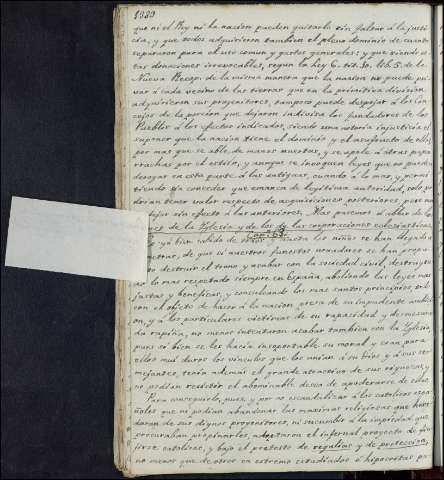 1020
que ni el Rey ni la nacion pueden quitarla sin faltar á la justi
cia, y que todos adquirieron tambien el pleno dominio de cuanto
separaron para el uso comun y gastos generales: y que siendo es
tas donaciones irrevocables, segun la Ley 6. tit. 10. lib. 5. de la
Nueva Recop. de la misma manera que la nacion no puede pri
var á cada vecino de las tierras que en la primitiva division
adquirieron sus progenitores, tampoco puede despojar á los con
cejos de la porcion que dejaron indivisa los fundadores de los
Pueblos á los efectos indicados, siendo una notoria injusticia el
suponer que la nacion tiene el dominio, y el usufructo de ellos,
por mas que se able, de manos muertas, y se apele á otras papar
ruchas por el estilo, y aunque se invoquen leyes que no pueden
derogar en esta parte á las antiguas, cuando á lo mas, y permi
tiendo sin conceder que emanen de legitima autoridad, solo po
drian tener valor respecto de adquisiciones posteriores, pero no
dejar sin efecto á las anteriores. Mas pasemos á ablar de los
de la Yglesia y de los de las corporaciones eclesiasticas.
ya bien sabido de todos y hasta los niños se han llegado á
que si nuestros funestos novadores se han propu
destruir el trono y acabar con la sociedad civil, destruyen
lo mas respetado siempre en España, aboliendo las leyes mas
justas y beneficas, y conculcando los mas santos principios
con el objeto de hacer á la nacion presa de su impudente ambici
on, y á los particulares victimas de su rapacidad y desmesura
da rapiña, no menos intentaron acabar tambien con la Yglesia,
pues si bien se les hacia insoportable su moral y eran para
ellos mui duros los vinculos que los unian á su Dios y á sus se
mejantes, tenia ademas el grande atractivo de sus riquezas, y
no podian resistir el abominable deseo de apoderarse de ellas.
Para conseguirlo, pues, y por no escandalizar á los catolicos espa
ñoles que ni podian abandonar las maximas religiosas que here
daron de sus dignos progenitores, ni sucumbir á la impiedad que
procuraban propinarles, adoptaron el infernal proyecto de fin
girse catolicos, y bajo el pretesto de regalias y de proteccion,
no menos que de otros en estremo estudiados é hipocritas pa